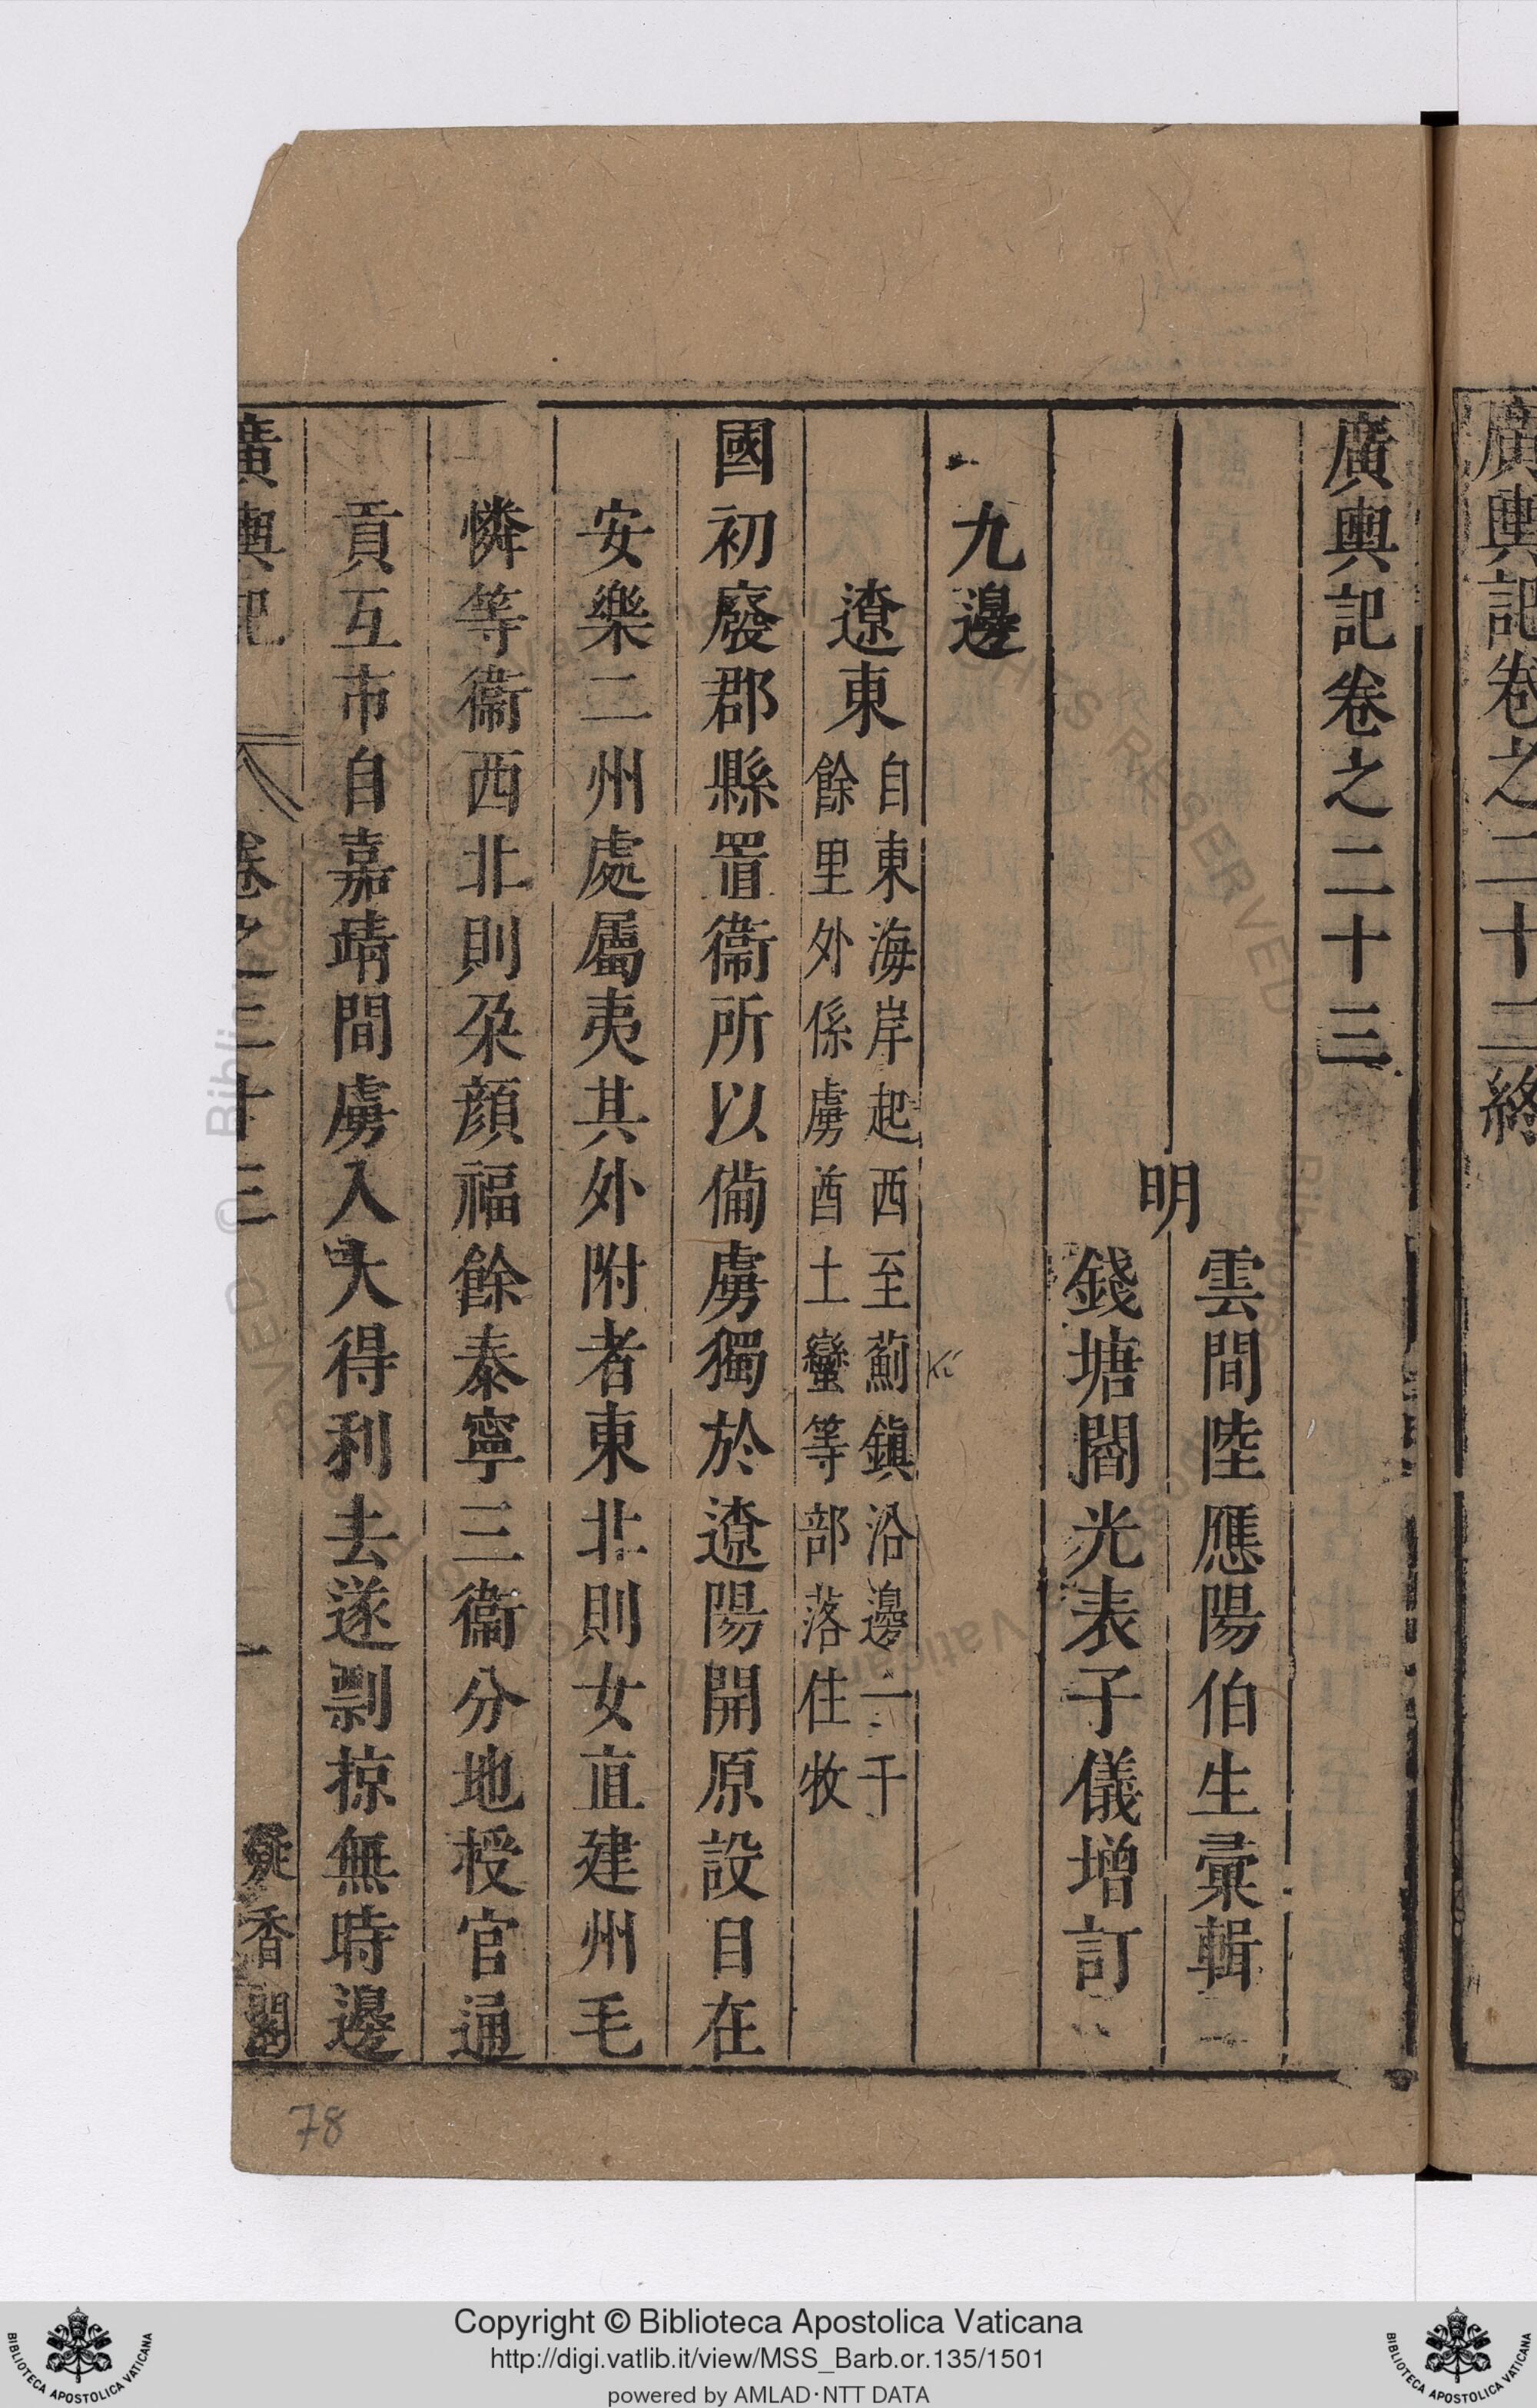 廣輿記卷之二十二終
廣輿記卷之二十三
明
雲間陸應陽伯生彙輯
錢塘閻光表子儀增訂
九邊
遼東
自東海岸起西至薊鎮沿邊二千
餘里外係虜酋土蠻等部落住牧
國初廢郡縣置衞所以備虜獨於遼陽開原設自在
安樂二州處屬夷其外附者東北則女直建州毛
憐等衞西北則朶顏福餘泰寧三衞分地授官通
貢互市自嘉靖間虜入大得利去遂剽掠無時邊
廣輿記
卷之二十三
一
凝香閣
Ki
78
Copyright © Biblioteca Apostolica Vaticana
http://digi.vatlib.it/view/MSS_Barb.or.135/1501
powered by AMLAD·NTT DATA
BIBLIOTECA APOSTOLICA VATICANA
BIBLIOTECA APOSTOLICA VATICANA